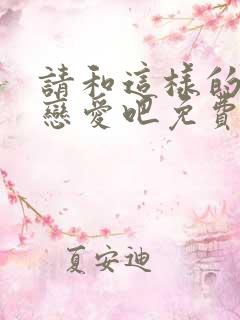 請和這樣的
戀愛吧免費
夏安迪